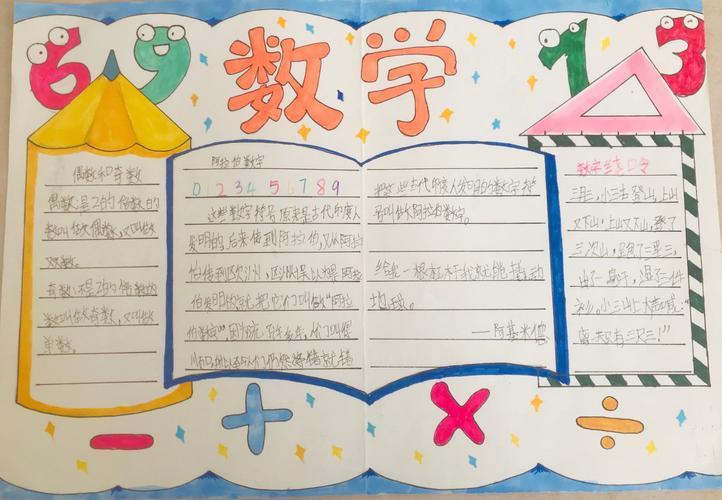 6 9 数学 1 3
偶数和奇数
偶数:是2的倍数的
数叫做偶数,又叫做
双数。
奇数:不是2的倍数的
数叫做奇数,又叫做
单数。
阿拉伯数字
0 1 2 3 4 5 6 7 8 9
这些数字符号原来是古代印度人
发明的,后来传到阿拉伯,又从阿拉
伯传到欧洲,欧洲人以为是阿拉
伯发明的,就把它们叫做"阿拉
伯数字",因为流传
所以人们
把这些古代印度人发明的数字符
号叫做阿拉伯数字。
给我一根杠杆我就能撬动
地球。
——阿基米德
数字绕口令
三月三,小三去登山,上山
又下山,下山又上山,登了
三次山,跑了三里三,
出了一身汗,湿了三件
衫,小三山上大声喊:
"离天只有三尺三!"
− + × ÷